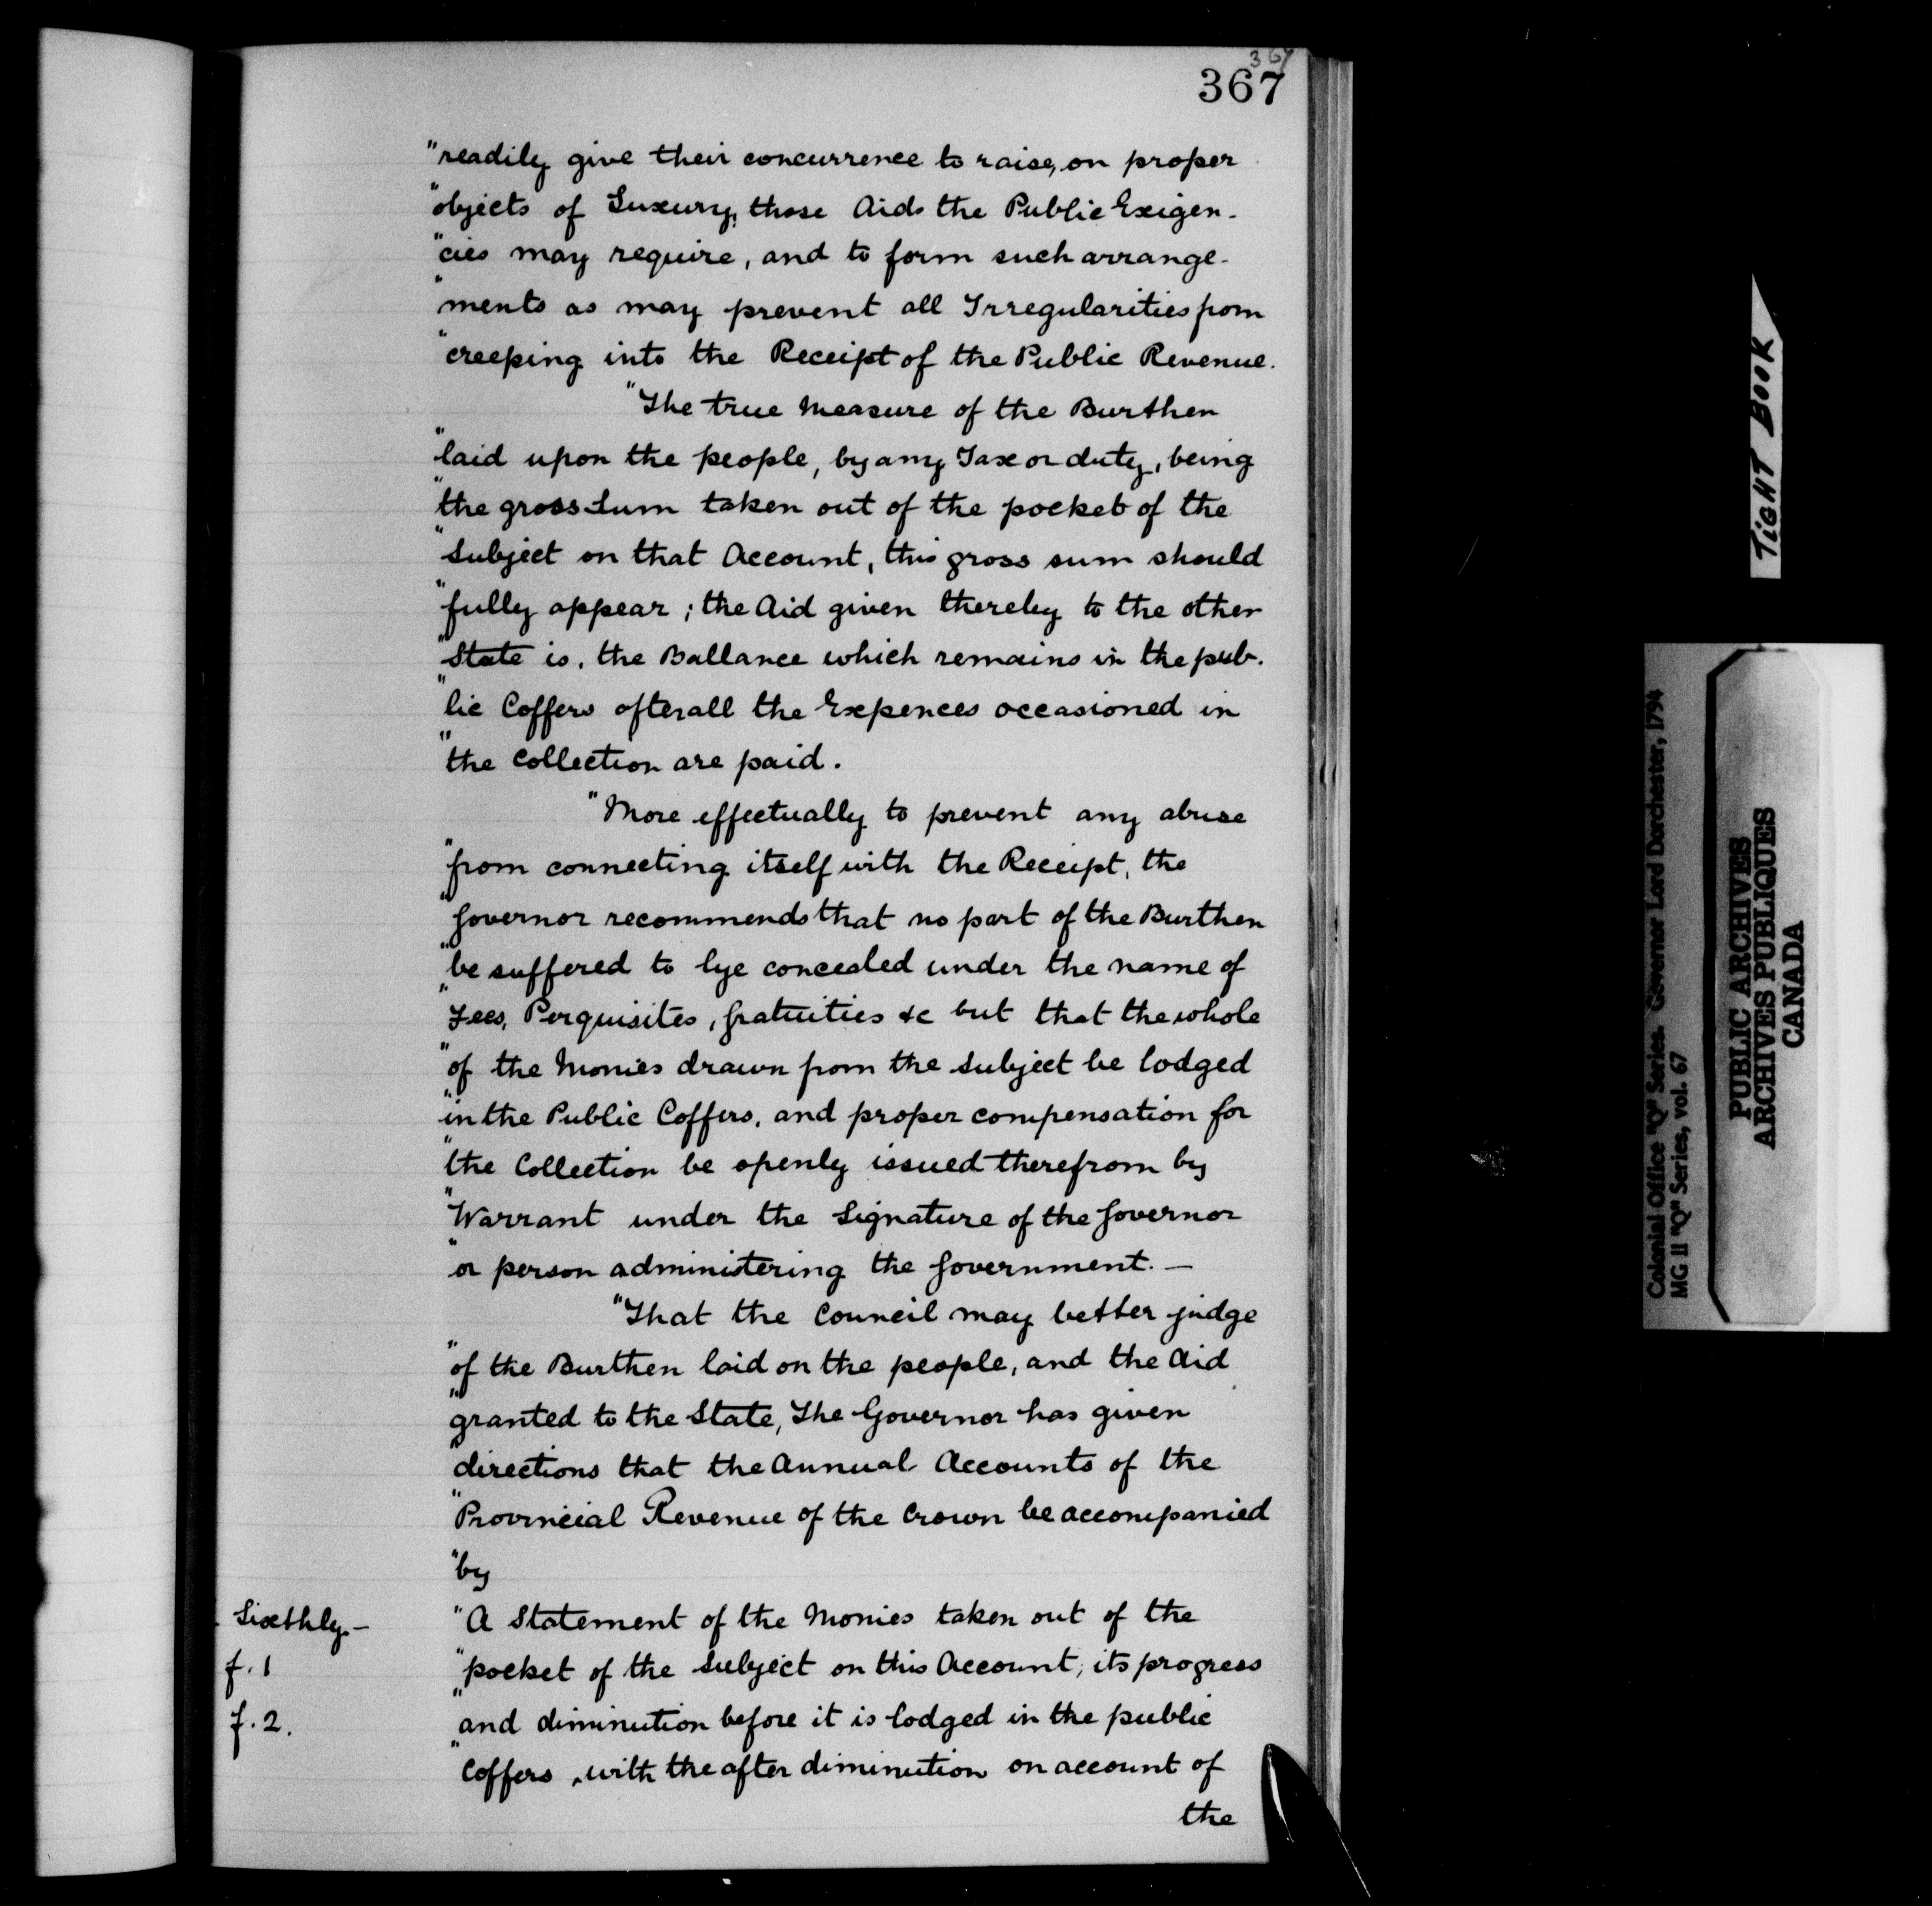 367
367
"readily give their concurrence to raise, on proper
"objects of Luxury, those Aids the Public Exigen-
"cies may require, and to form such arrange-
"ments as may prevent all Irregularities from
"creeping into the Receipt of the Public Revenue.
"The true Measure of the Burthen
"laid upon the people, by any Tax or duty, being
"the gross Sum taken out of the pocket of the
"Subject on that Account, this gross sum should
"fully appear; the Aid given thereby to the other
"State is, the Ballance which remains in the pub-
"lic Coffers after all the Expences occasioned in
"the Collection are paid.
"More effectually to prevent any abuse
"from connecting itself with the Receipt, the
"Governor recommends that no part of the Burthen
"be suffered to lye concealed under the name of
"Fees, Perquisites, Gratuities &c but that the whole
"of the Monies drawn from the Subject be lodged
"in the Public Coffers, and proper compensation for
"the Collection be openly issued therefrom by
"Warrant under the Signature of the Governor
"or person administering the Government. —
"That the Council may better judge
"of the Burthen laid on the people, and the Aid
"granted to the State, The Governor has given
"directions that the Annual Accounts of the
"Provincial Revenue of the Crown be accompanied
"by
Sixthly.—
"A Statement of the Monies taken out of the
f. 1
"pocket of the Subject on this Account; its progress
f. 2.
"and diminution before it is lodged in the public
"Coffers, with the after diminution on account of
the
TIGHT BOOK
Colonial Office "Q" Series. Governor Lord Dorchester, 1794
MG 11 "Q" Series, vol. 67
PUBLIC ARCHIVES
ARCHIVES PUBLIQUES
CANADA